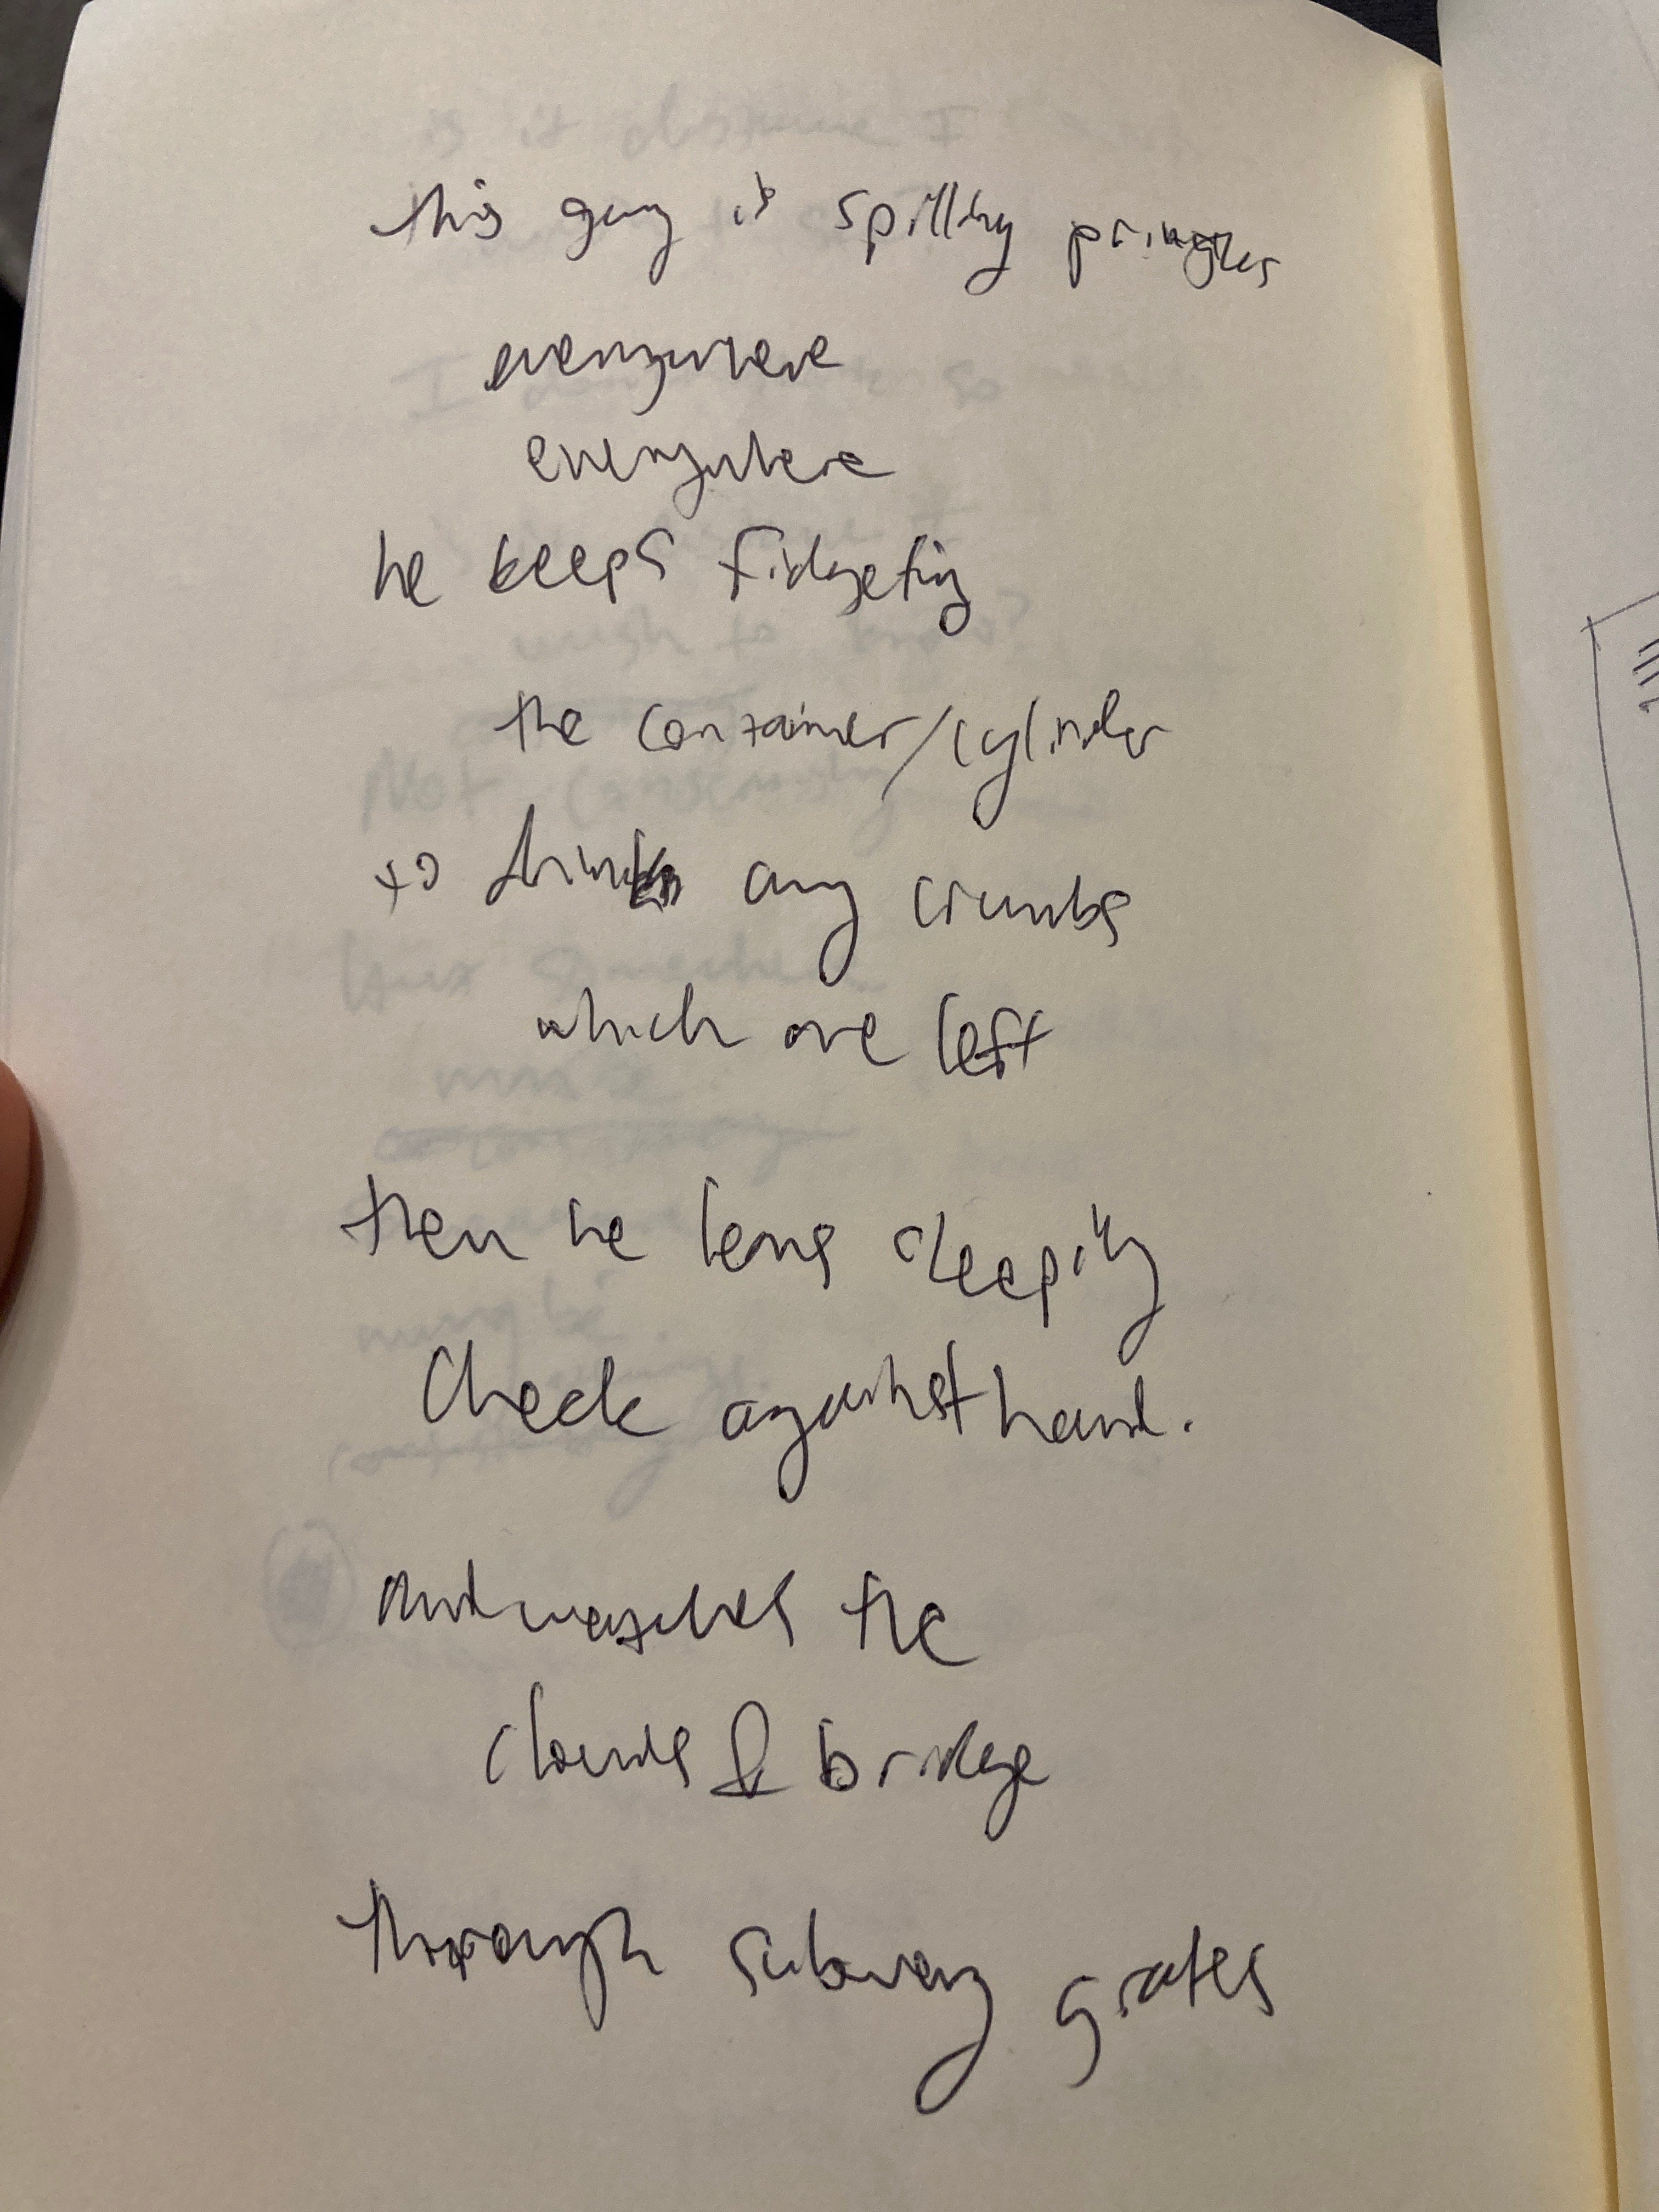 this guy is spilling pringles
everywhere
everywhere
he keeps fidgeting
the container/cylinder
to drink any crumbs
which are left
then he leans sleepily
Cheek against hand.
and watches the
clouds & bridge
through subway grates